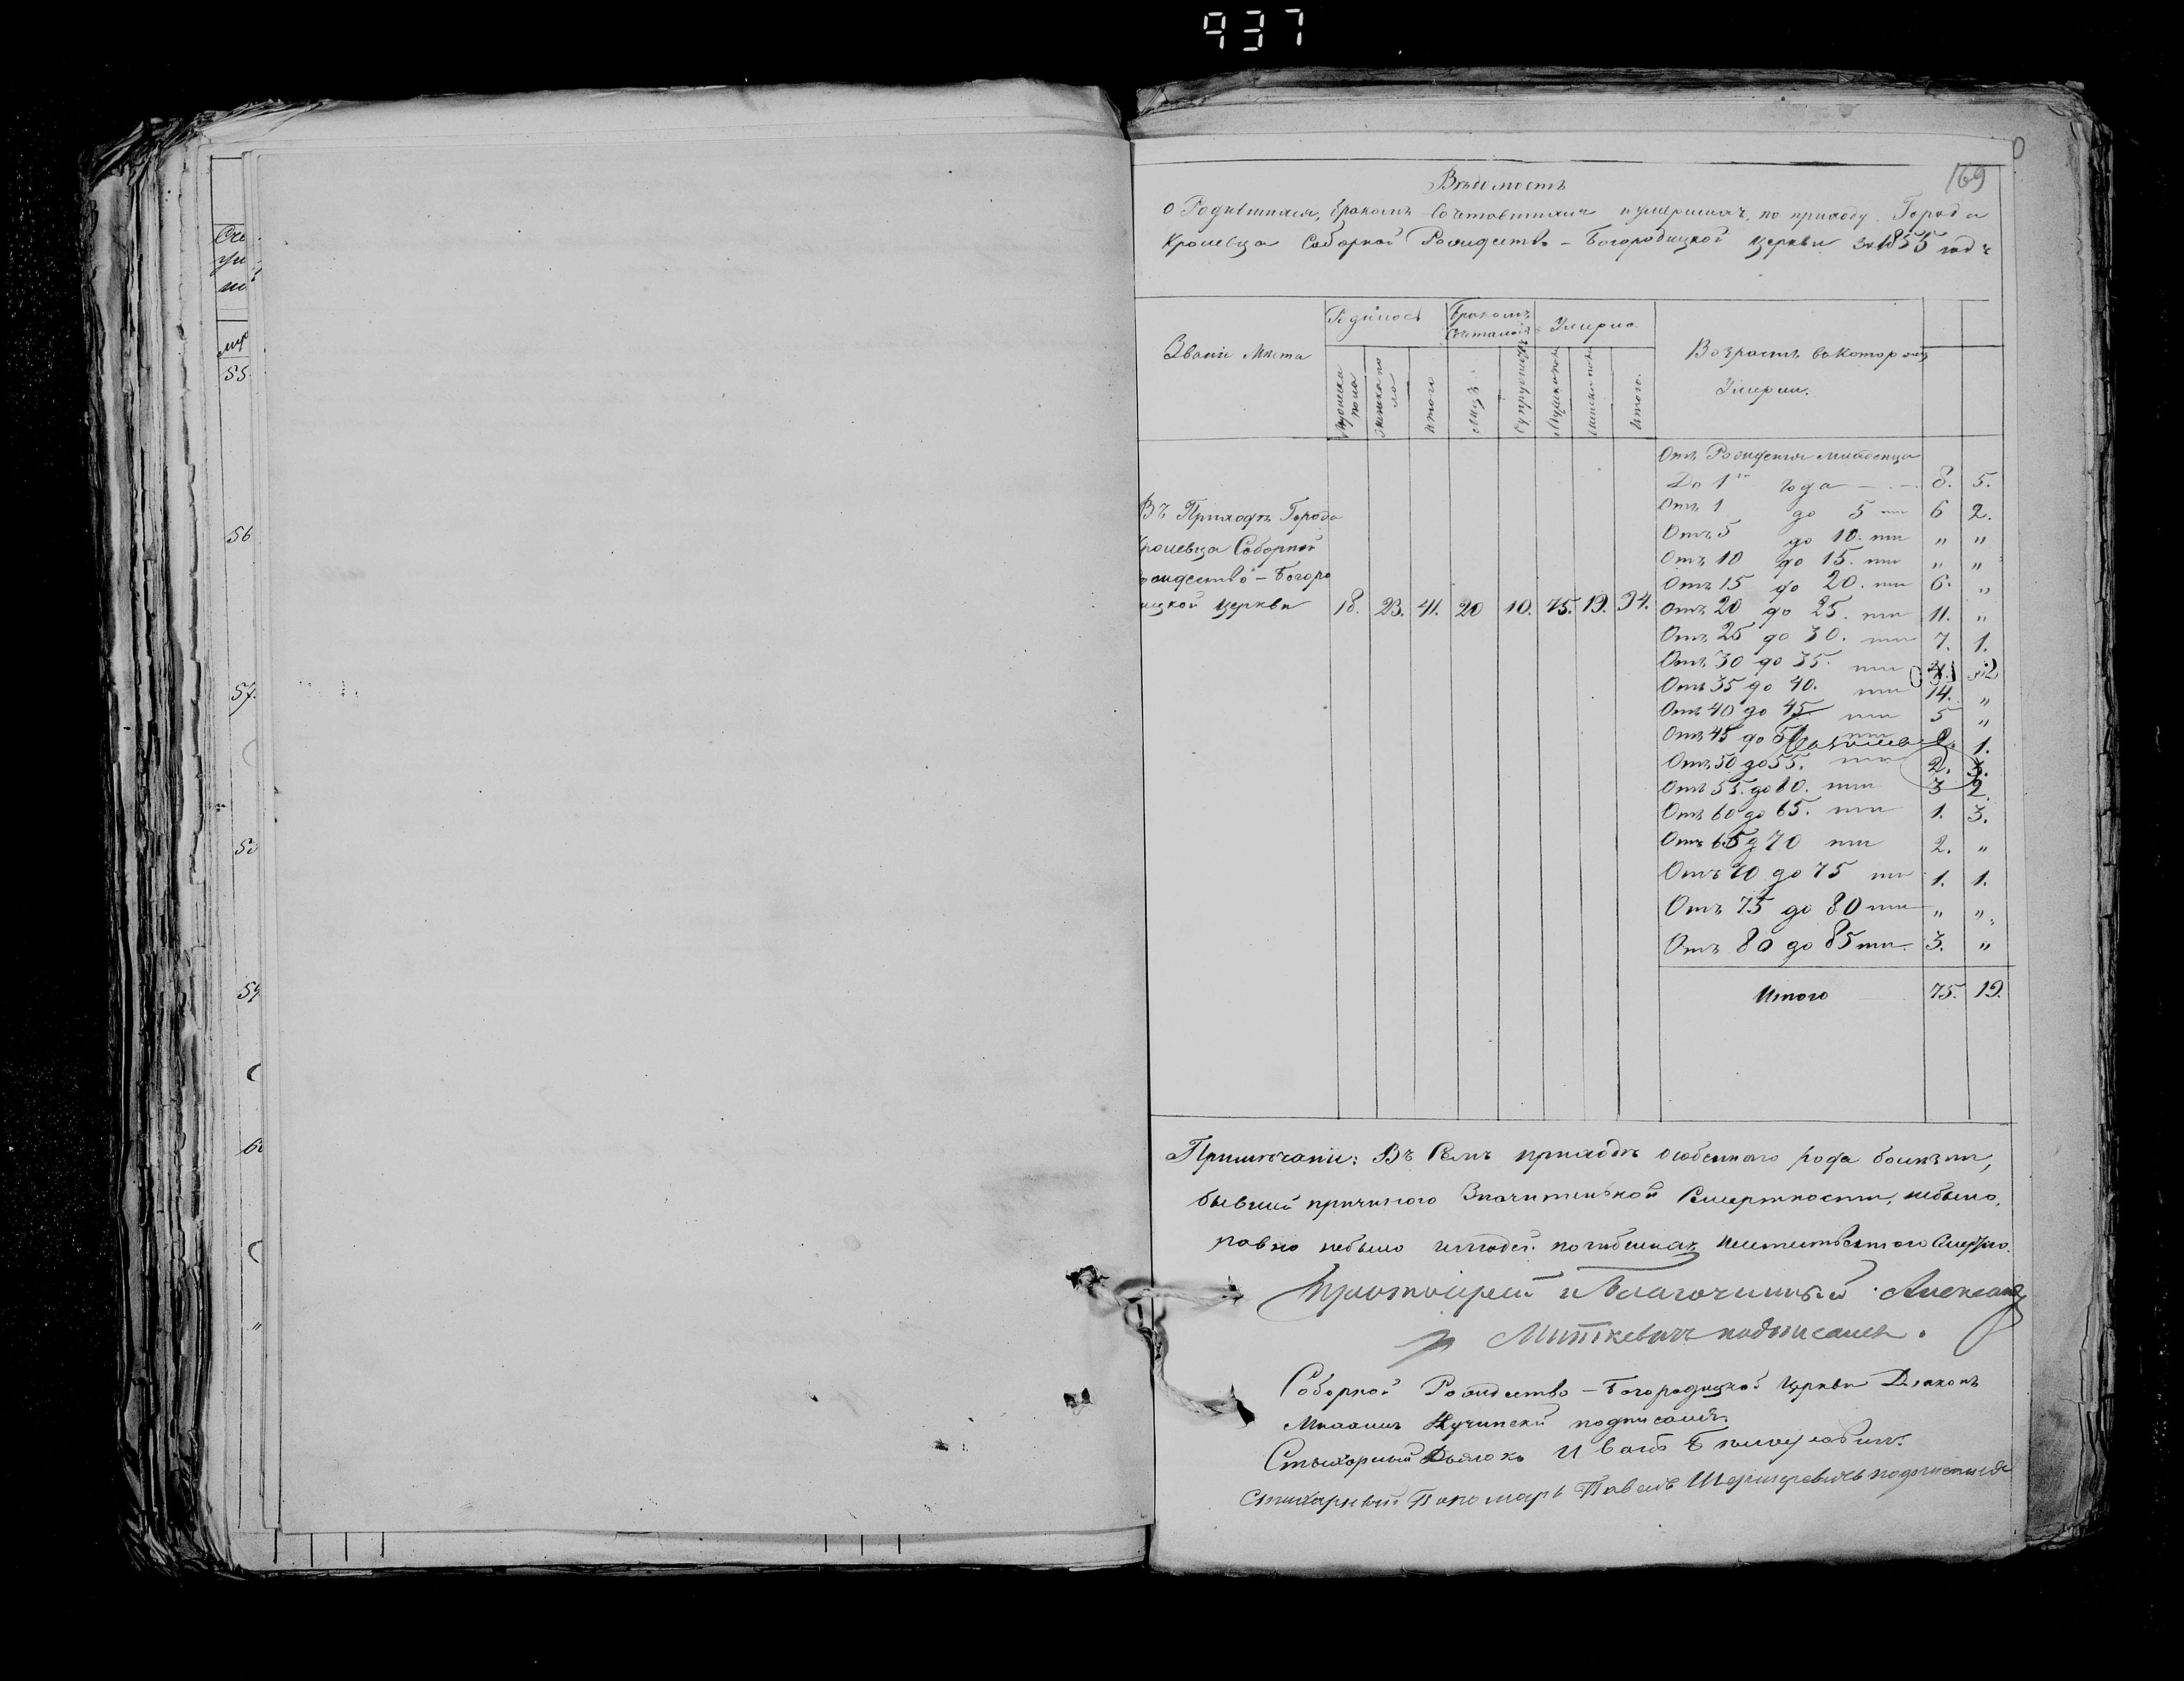 937
169
Вѣдомость
о Родившихся, бракомъ Сочтавшихся и умершихъ, по приходу Города
Кролевца Соборной Рождество-Богородицкой церкви за 1855 годъ
Званіе Мѣста
Родилось
Бракомъ
Сочталось
Умерло
Возрастъ въ которомъ
Умерли.
Мужеска пола
Женска пола
Итого
Супруговъ
Мужеска пола
Женска пола
Итого.
Въ Приходѣ Города
Кролевца Соборной
Рождество-Богоро
ицкой церкви 18. 23. 41. 20 10. 75. 19. 94.
Отъ Рожденія младенца
До 1го года 8. 5.
Отъ 1 до 5 ти 6 2.
Отъ 5 до 10. ти " "
Отъ 10 до 15. ти " "
Отъ 15 до 20. ти 6. "
Отъ 20 до 25. ти 11. "
Отъ 25 до 30. ти 7. 1.
Отъ 30 до 35. ти
Отъ 35 до 40. ти 14. "
Отъ 40 до 45 ти 5 "
Отъ 45 до ти 1.
Отъ 50 до 55. ти 2. 3.
Отъ 55. до 60. ти 3 2.
Отъ 60 до 65. ти 1. 3.
Отъ 65 д 70 ти 2. "
Отъ 70 до 75 ти 1. 1.
Отъ 75 до 80 ти " "
Отъ 80 до 85 ти. 3. "
Итого 75. 19.
Примѣчаніе: Въ Семъ приходѣ особеннаго рода болѣзни,
бывшей причиною Значительной Смертности, небыло,
равно небыло илюдей погибшихъ
Протоіерей и Благочинный Александ
р Миткевичъ подписался.
Соборной Рождество-Богородицкой Церкви Діаконъ
Михаилъ Кучинскій подписалъ.
Стихарный Дьячокъ Иванъ
Стихарный Пономарь Павелъ подписался
55
56
57.
59